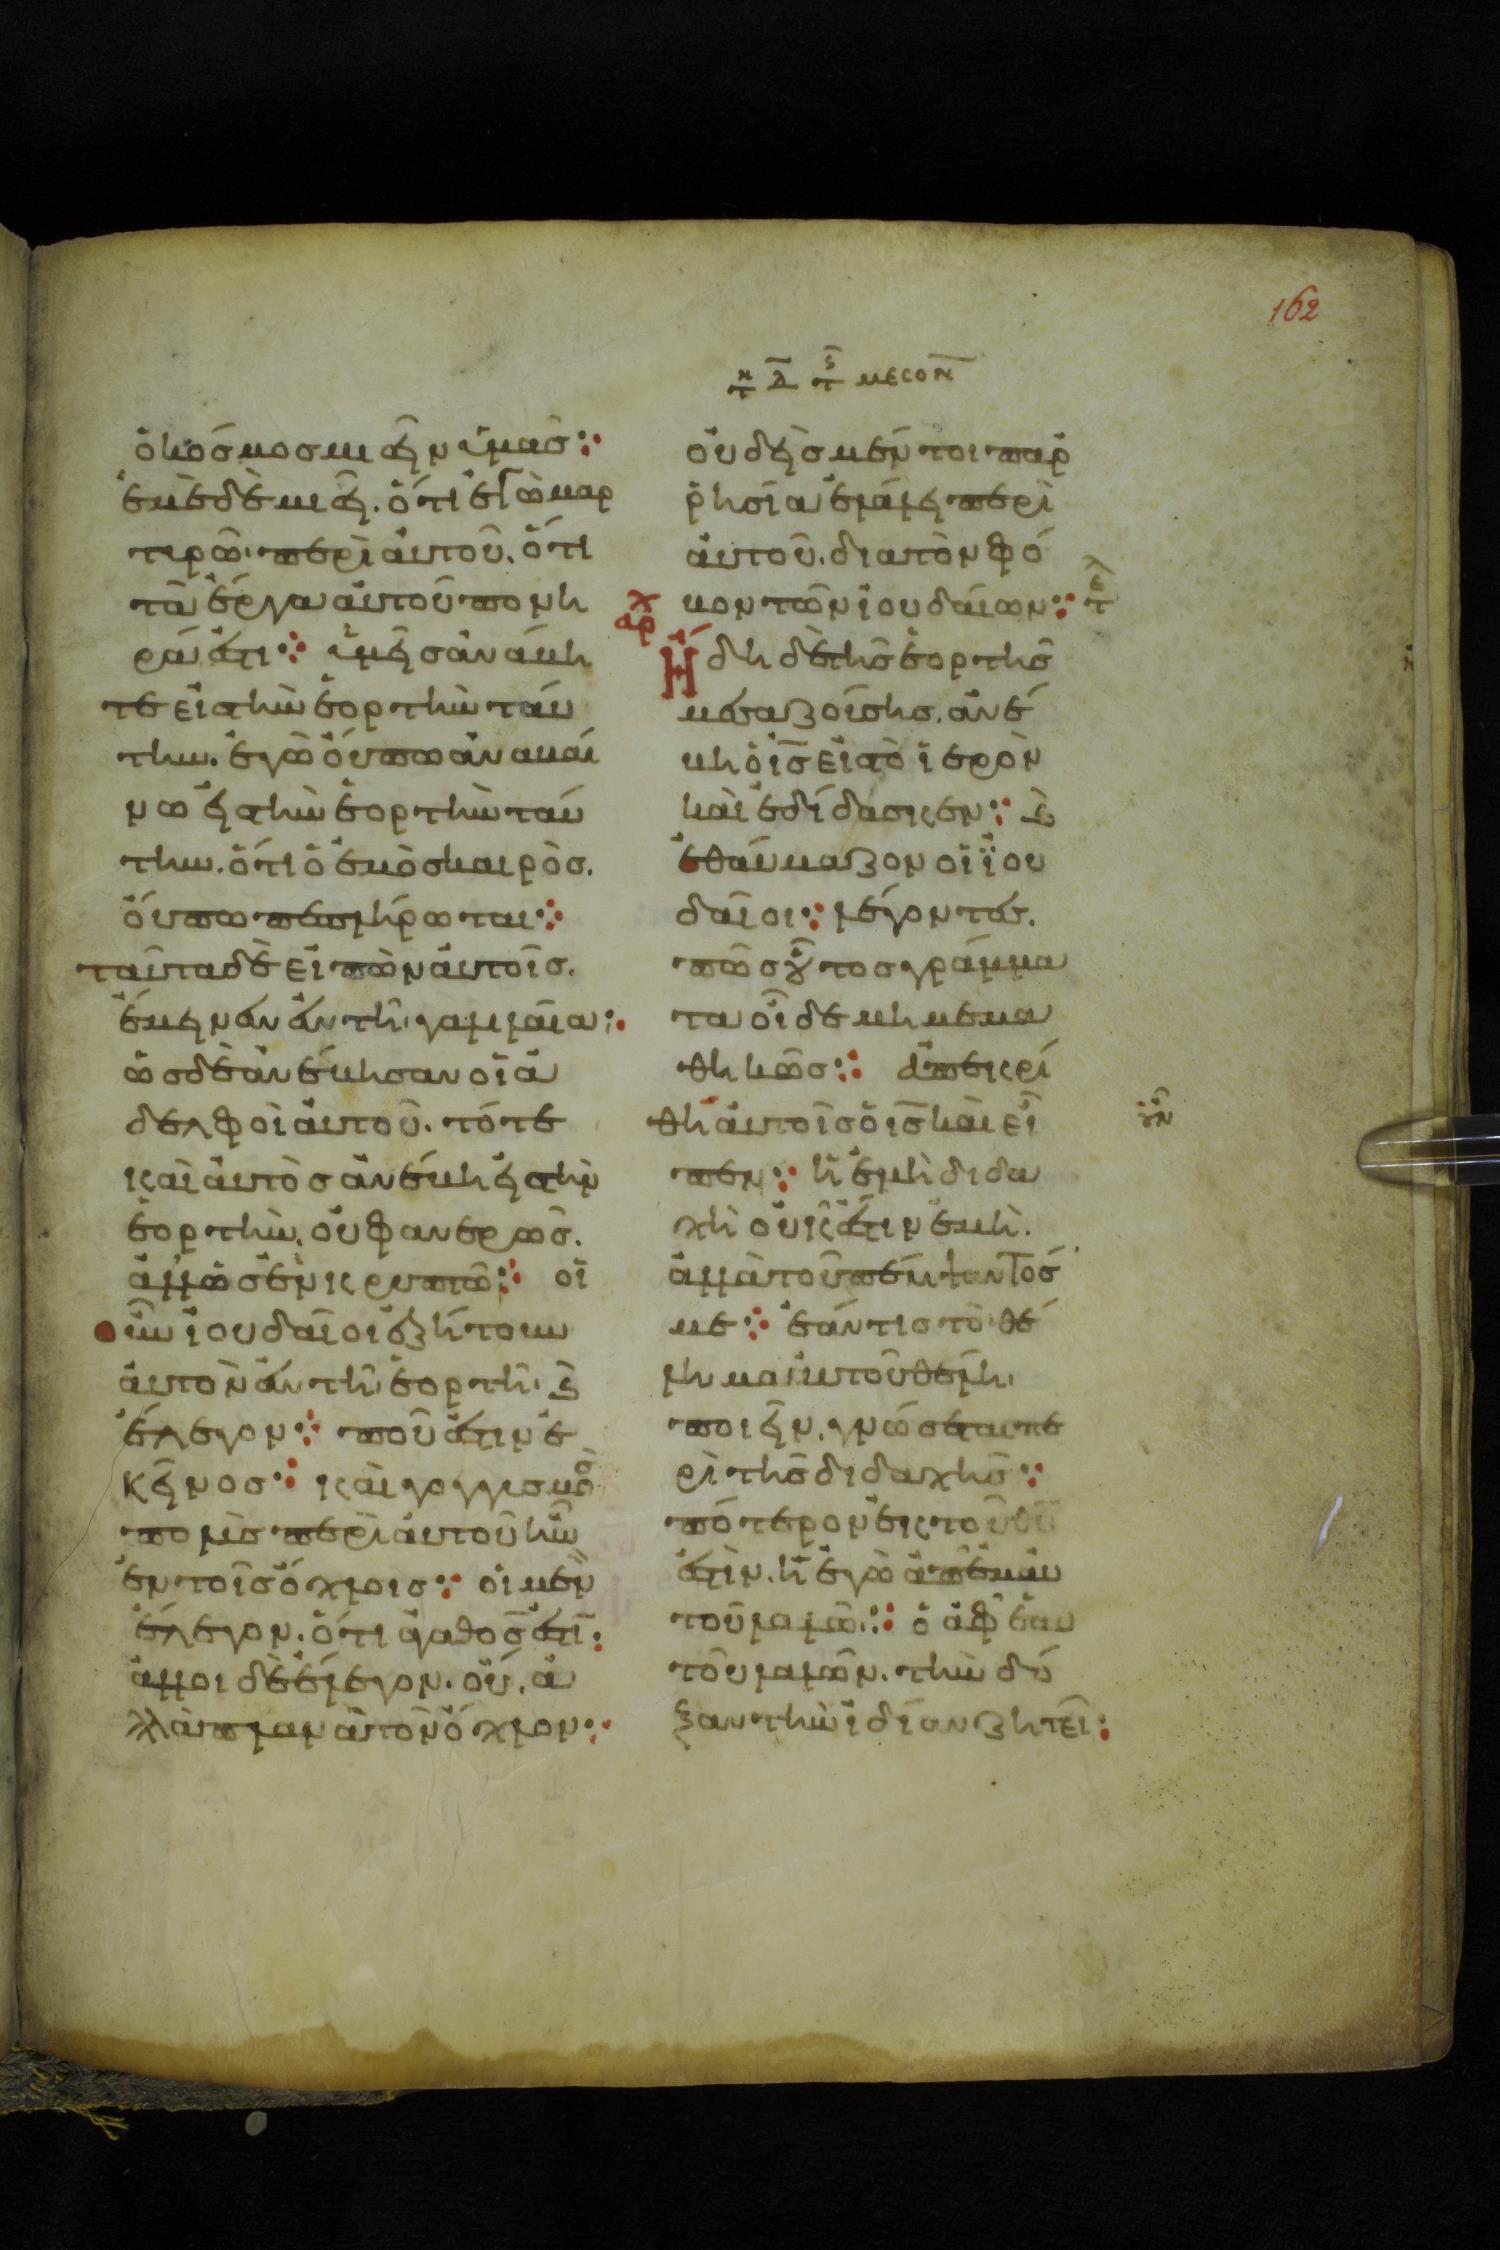 162
τη δ τς μεσον
ὁ κόσμος μισεῖν ὑμᾶς
ἐμὲ δὲ μισεῖ. ὅτι ἐγὼ μαρ
τυρῶ περὶ αὐτοῦ. ὅτι
τὰ ἔργα αὐτοῦ πονη
ρά ἐστι ὑμεῖς ἀνάβη
τε εἰς τὴν ἑορτὴν ταύ
την. ἐγὼ οὔπω ἀναβαί
νω εἰς τὴν ἑορτὴν ταύ
την. ὅτι ὁ ἐμὸς καιρὸς.
οὔπω πεπλήρωται
ταῦτα δὲ εἰπὼν αὐτοῖς.
ἔμεινεν ἐν τῇ γαλιλαία
ὡς δὲ ἀνέβησαν οἱ ἀ
δελφοὶ αὐτοῦ. τότε
καὶ αὐτὸς ἀνέβη εἰς τὴν
ἑορτὴν. οὐ φανερῶς.
ἀλλ' ὡς ἐν κρυπτῶ οἱ
οὖν ἰουδαῖοι ἐζήτουν
αὐτὸν ἐν τῇ ἑορτῇ. καὶ
ἔλεγον ποῦ ἐστιν ἐ
κεῖνος καὶ γογγυσμὸς
πολὺς περὶ αὐτοῦ ἦν
ἐν τοῖς ὄχλοις οἱ μὲν
ἔλεγον. ὅτι ἀγαθός ἐστι
ἄλλοι δὲ ἔλεγον. οὔ. ἀ
λλὰ πλανᾶ τὸν ὄχλον
οὐδεὶς μέντοι παρ
ρησία ἐλάλει περὶ
αὐτοῦ. διὰ τὸν φό
βον τῶν ἰουδαίων τε
αρχ
Ἤδη δὲ τῆς ἑορτῆς
μεσαζούσης. ἀνέ
βη ὁ ις εἰς τὸ ἱερὸν
καὶ ἐδίδασκεν καὶ
ἐθαύμαζον οἱ ἰου
δαῖοι λέγοντες.
πῶς οὗτος γράμμα
τα οἶδε μὴ μεμα
θηκώς ἀπεκρί
θη αὐτοῖς ὁ ις καὶ εἶ οὖν
πεν ἡ ἐμὴ διδα
χὴ οὐκ ἔστιν ἐμὴ.
ἀλλὰ τοῦ πέμψαντός
με ἐάν τις τὸ θέ
λημα αὐτοῦ θέλη
ποιεῖν. γνώσεται πε
ρὶ τῆς διδαχῆς
πότερον ἐκ τοῦ θυ
ἐστὶν. ἢ ἐγὼ ἀπ' ἐμαυ
τοῦ λαλῶ ὁ ἀφ' ἑαυ
τοῦ λαλῶν. τὴν δό
ξαν τὴν ἰδίαν ζητεῖ